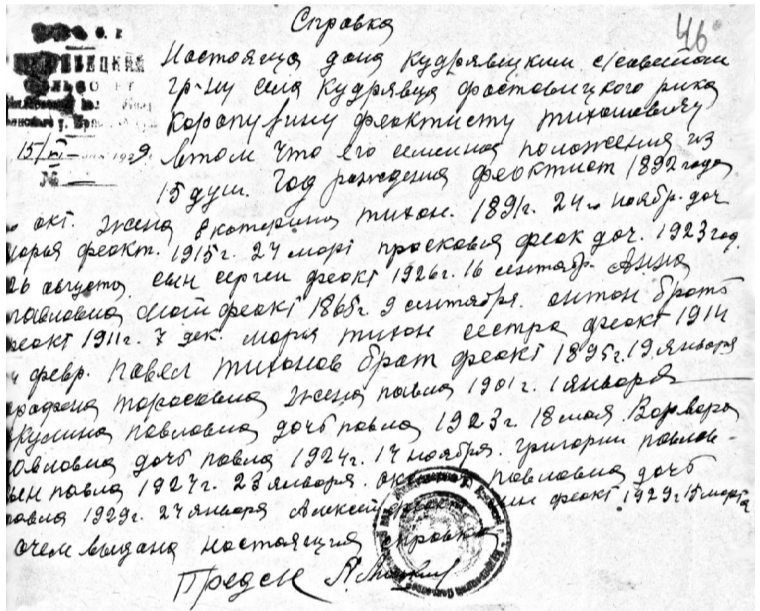 Справка
46
Настояща дана Кудрявицким с/советом
гр-ну села Кудрявца фастовицкого рика
Карапузину феоктисту тихоновичу
15/ 1929
втом что его семейная положения из
№
15 душ. Год рождения феоктист 1892 года
окт. жена Екатерина тихон. 1891г. 24 ноябр. доч
марья феокт. 1915г. 24 март просковья феок доч. 1923 год.
26 августа сын сергеи феокт 1926г. 16 сентябр. Анна
павловна феокт 1865г 9 сентября. антон братъ
феокт 1911г. 7 дек. марья тихон сестра феокт 1914
февр. павел тихонов брат феокт 1895г. 19 января
тарасовна жена павла 1901г. 1 января
акулина павловна дочь павла 1923г. 18 мая. Варвара
павловна дочь павла 1924г. 14 ноября. григории павлов-
сын павла 1927г. 23 января. павловна дочь
павла 1929г. 24 января Алексей феокт 1929г 15 марта
очем выдана настоящия справка
Предс